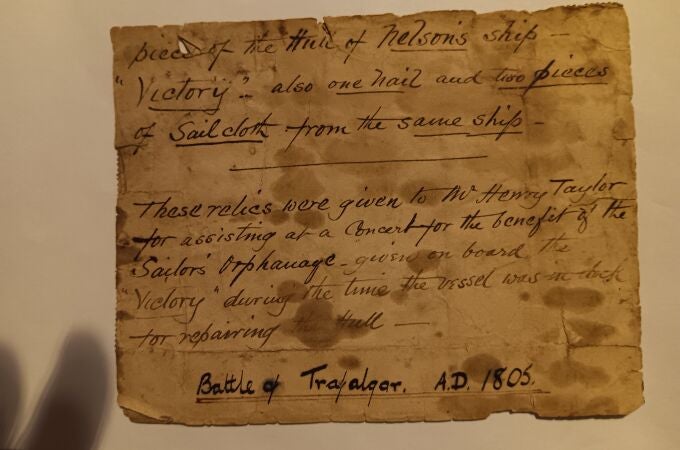 piece of the Hull of Nelson's ship —
"Victory" - also one nail and two pieces
of Sailcloth from the same ship -
These relics were given to Mr Henry Taylor
for assisting at a Concert for the benefit of the
Sailors Orphanage - given on board the
"Victory" during the time the vessel was in dock
for repairing the Hull —
Battle of Trafalgar. A.D. 1805.